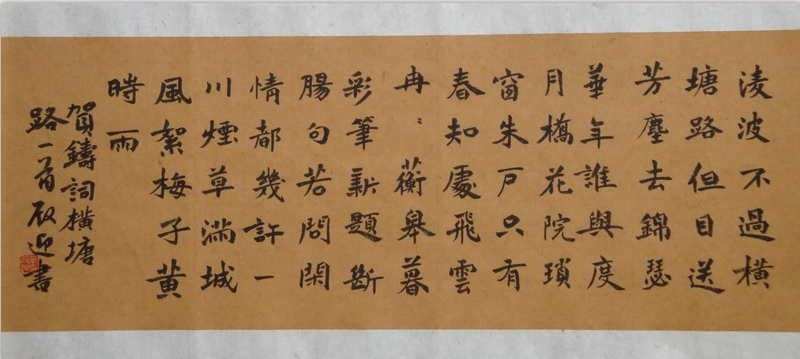 淩波不過橫
塘路但目送
芳塵去錦瑟
華年誰與度
月橋花院瑣
窗朱戸只有
春知處飛雲
冉〻蘅皋暮
彩筆新題斷
腸句若問閑
情都幾許一
川煙草滿城
風絮梅子黃
時雨
賀鑄詞橫塘
路一首迎書